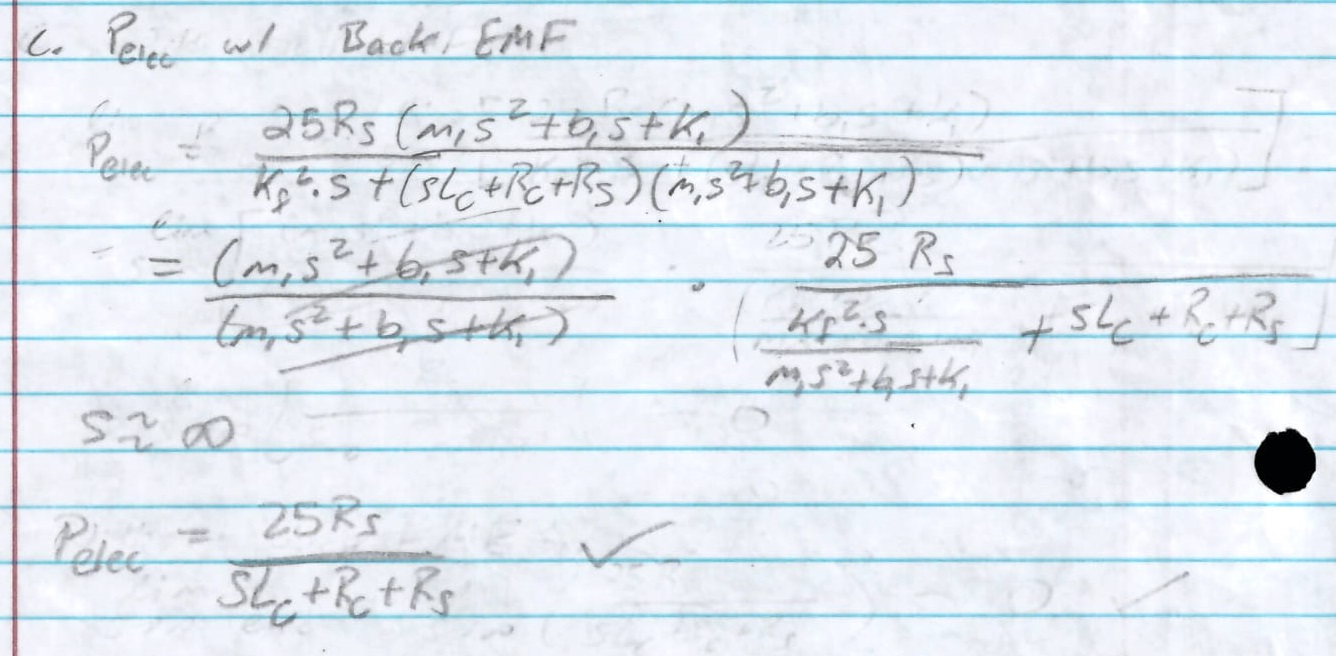 c. Pelec w/ Back EMF
Pelec = 25Rs (m₁s²+b₁s+K₁) / Kf²·s + (sLc+Rc+Rs)(m₁s²+b₁s+K₁)
= (m₁s²+b₁s+K₁) / (m₁s²+b₁s+K₁) · 25 Rs / [Kf²·s / m₁s²+b₁s+K₁ + sLc+Rc+Rs]
s ≈ ∞
Pelec = 25Rs / sLc+Rc+Rs ✓